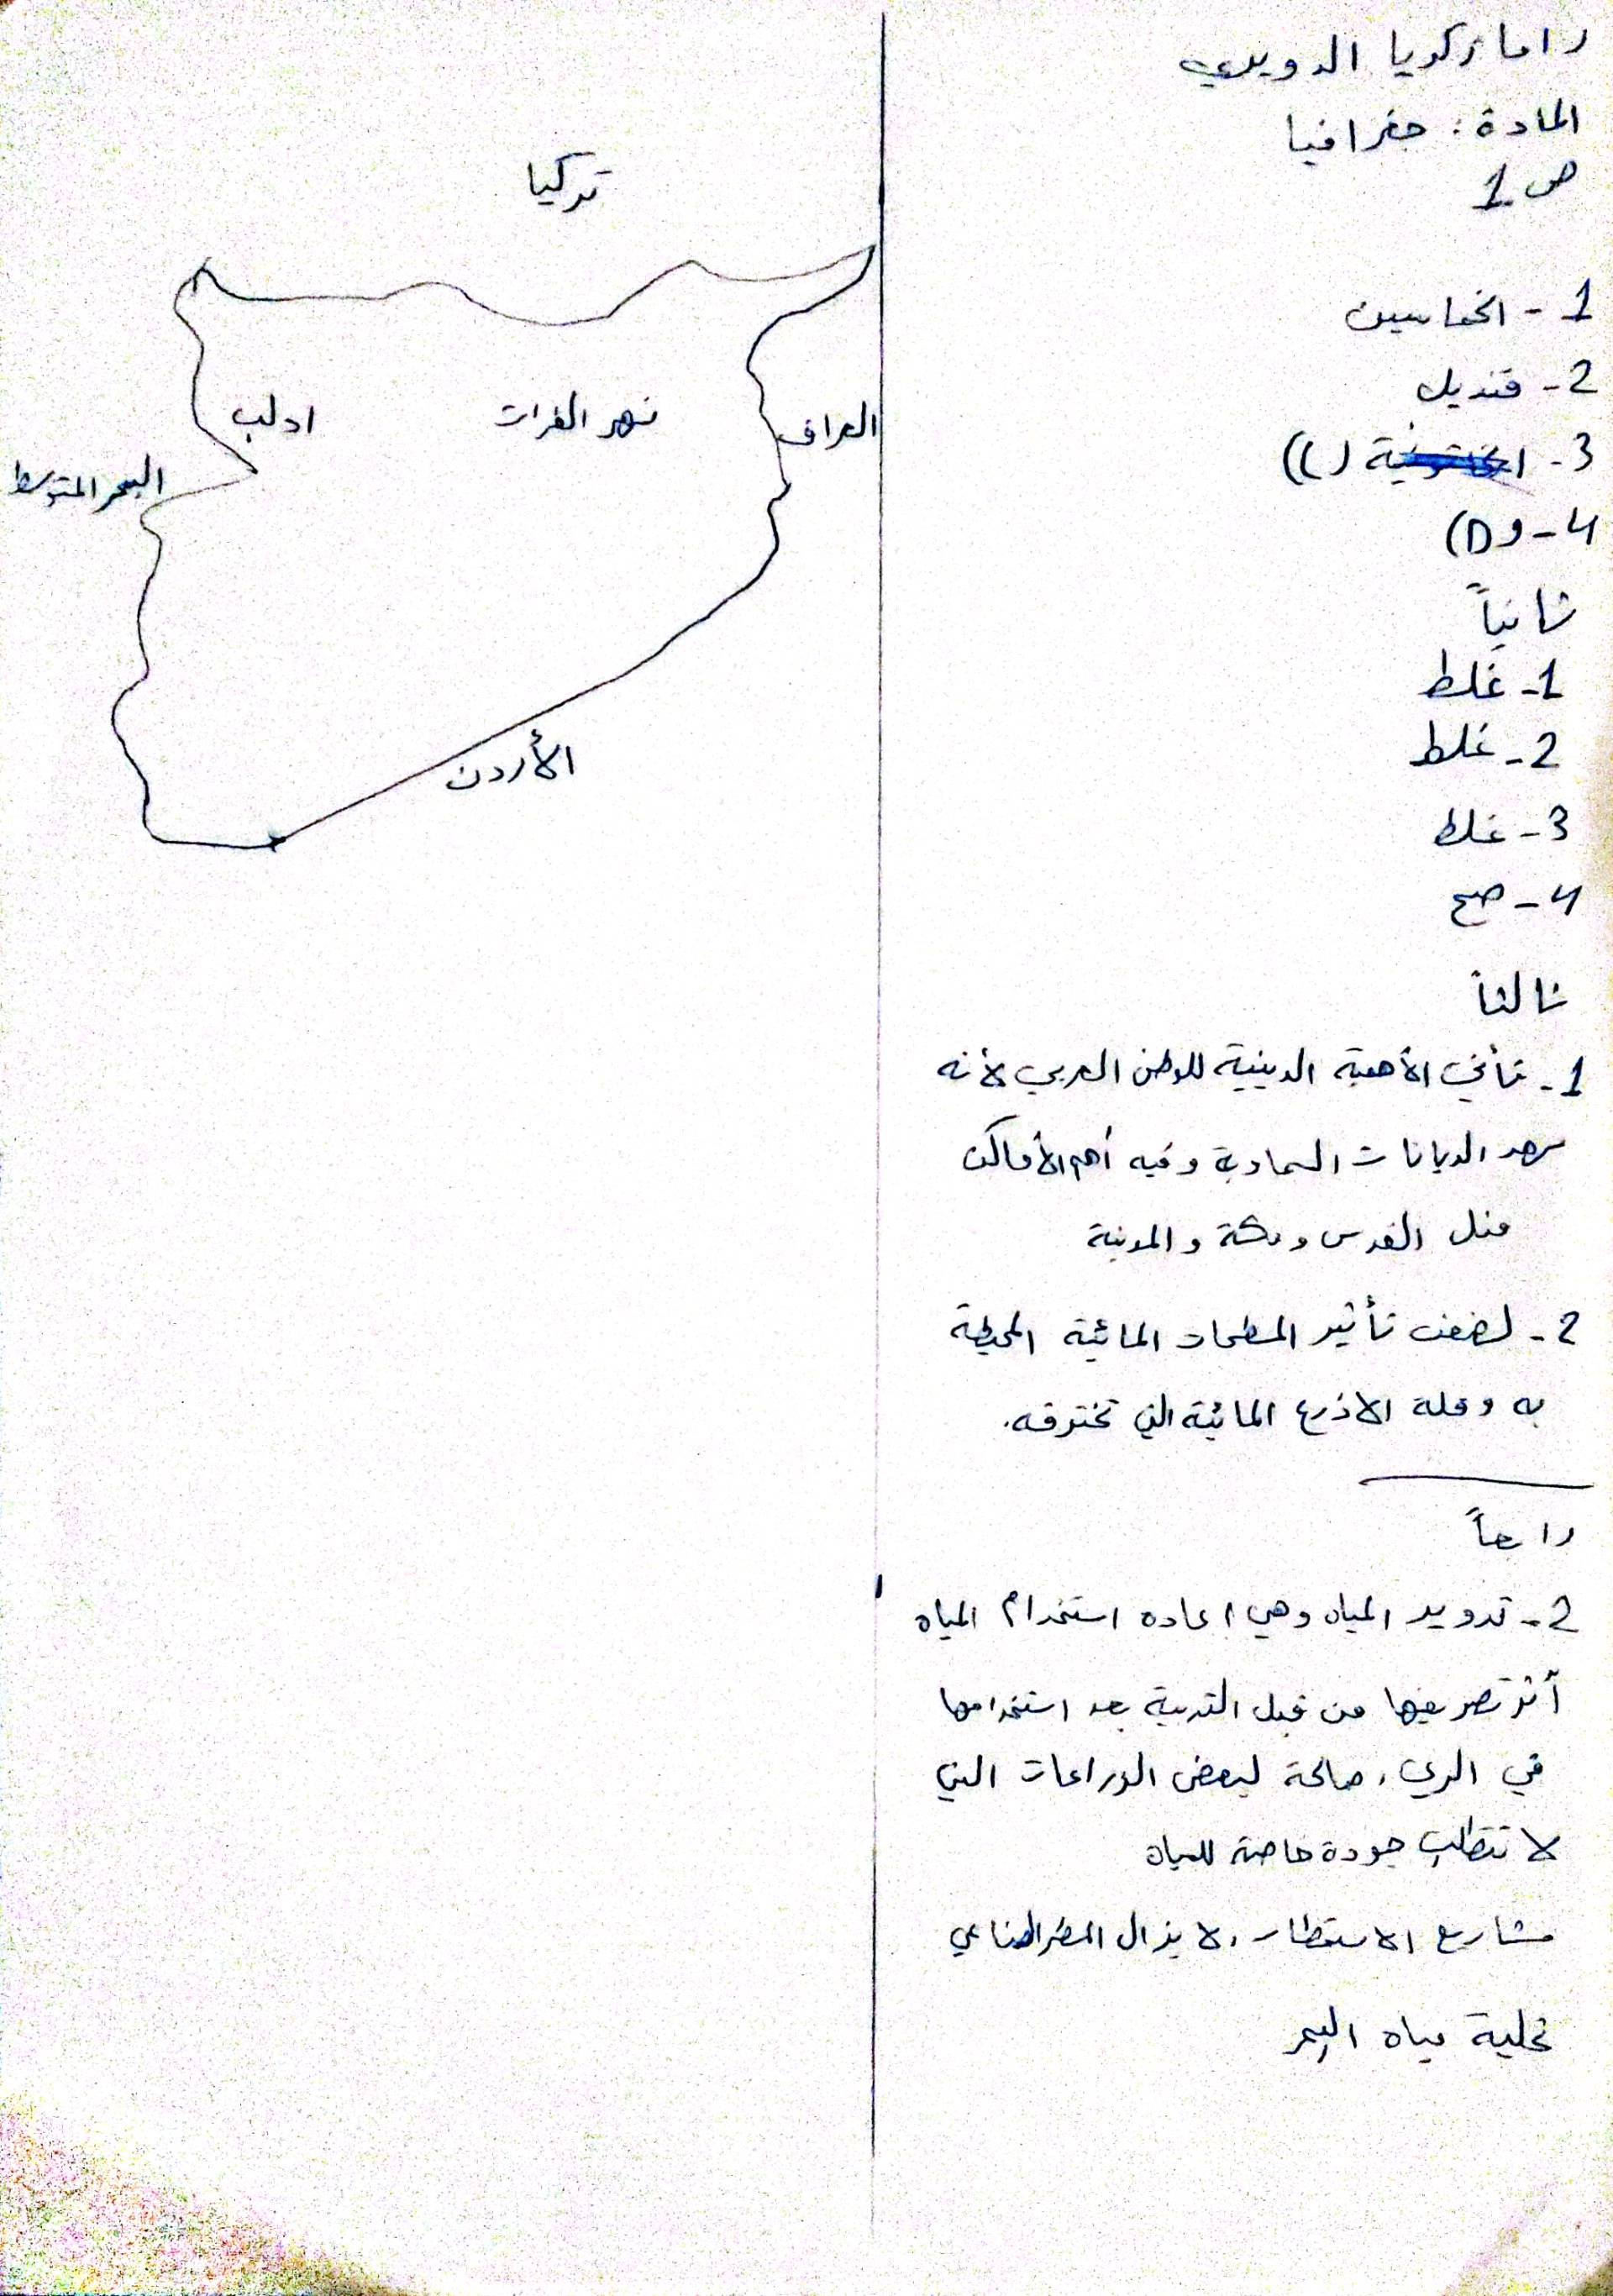 راما زكريا الدويري
المادة: جغرافيا
ص 1
1 - الخماسين
2 - قنديل
3 - (C)
4 - (D)
ثانياً
1 - غلط
2 - غلط
3 - غلط
4 - صح
ثالثاً
1 - تأتي الأهمية الدينية للوطن العربي لأنه
مهد الديانات السماوية وفيه أهم الأماكن
مثل القدس ومكة والمدينة
2 - لضعف تأثير المسطحات المائية المحيطة
به وقلة الاذرع المائية التي تخترقه.
رابعاً
2 - تدوير المياه وهي اعاده استخدام المياه
تصريفها من قبل التربية بعد استخدامها
في الري، صالحة لبعض الزراعات التي
لا تتطلب جودة خاصة للمياه
مشاريع الاستمطار، لا يزال المطر الصناعي
تحلية مياه البحر
تركيا
ادلب
نهر الفرات
العراق
البحر المتوسط
الأردن